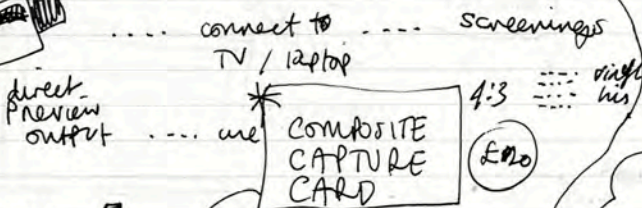 .... connect to .... screenings
TV / laptop
direct
preview
output .... use
* COMPOSITE
CAPTURE
CARD
4:3
his